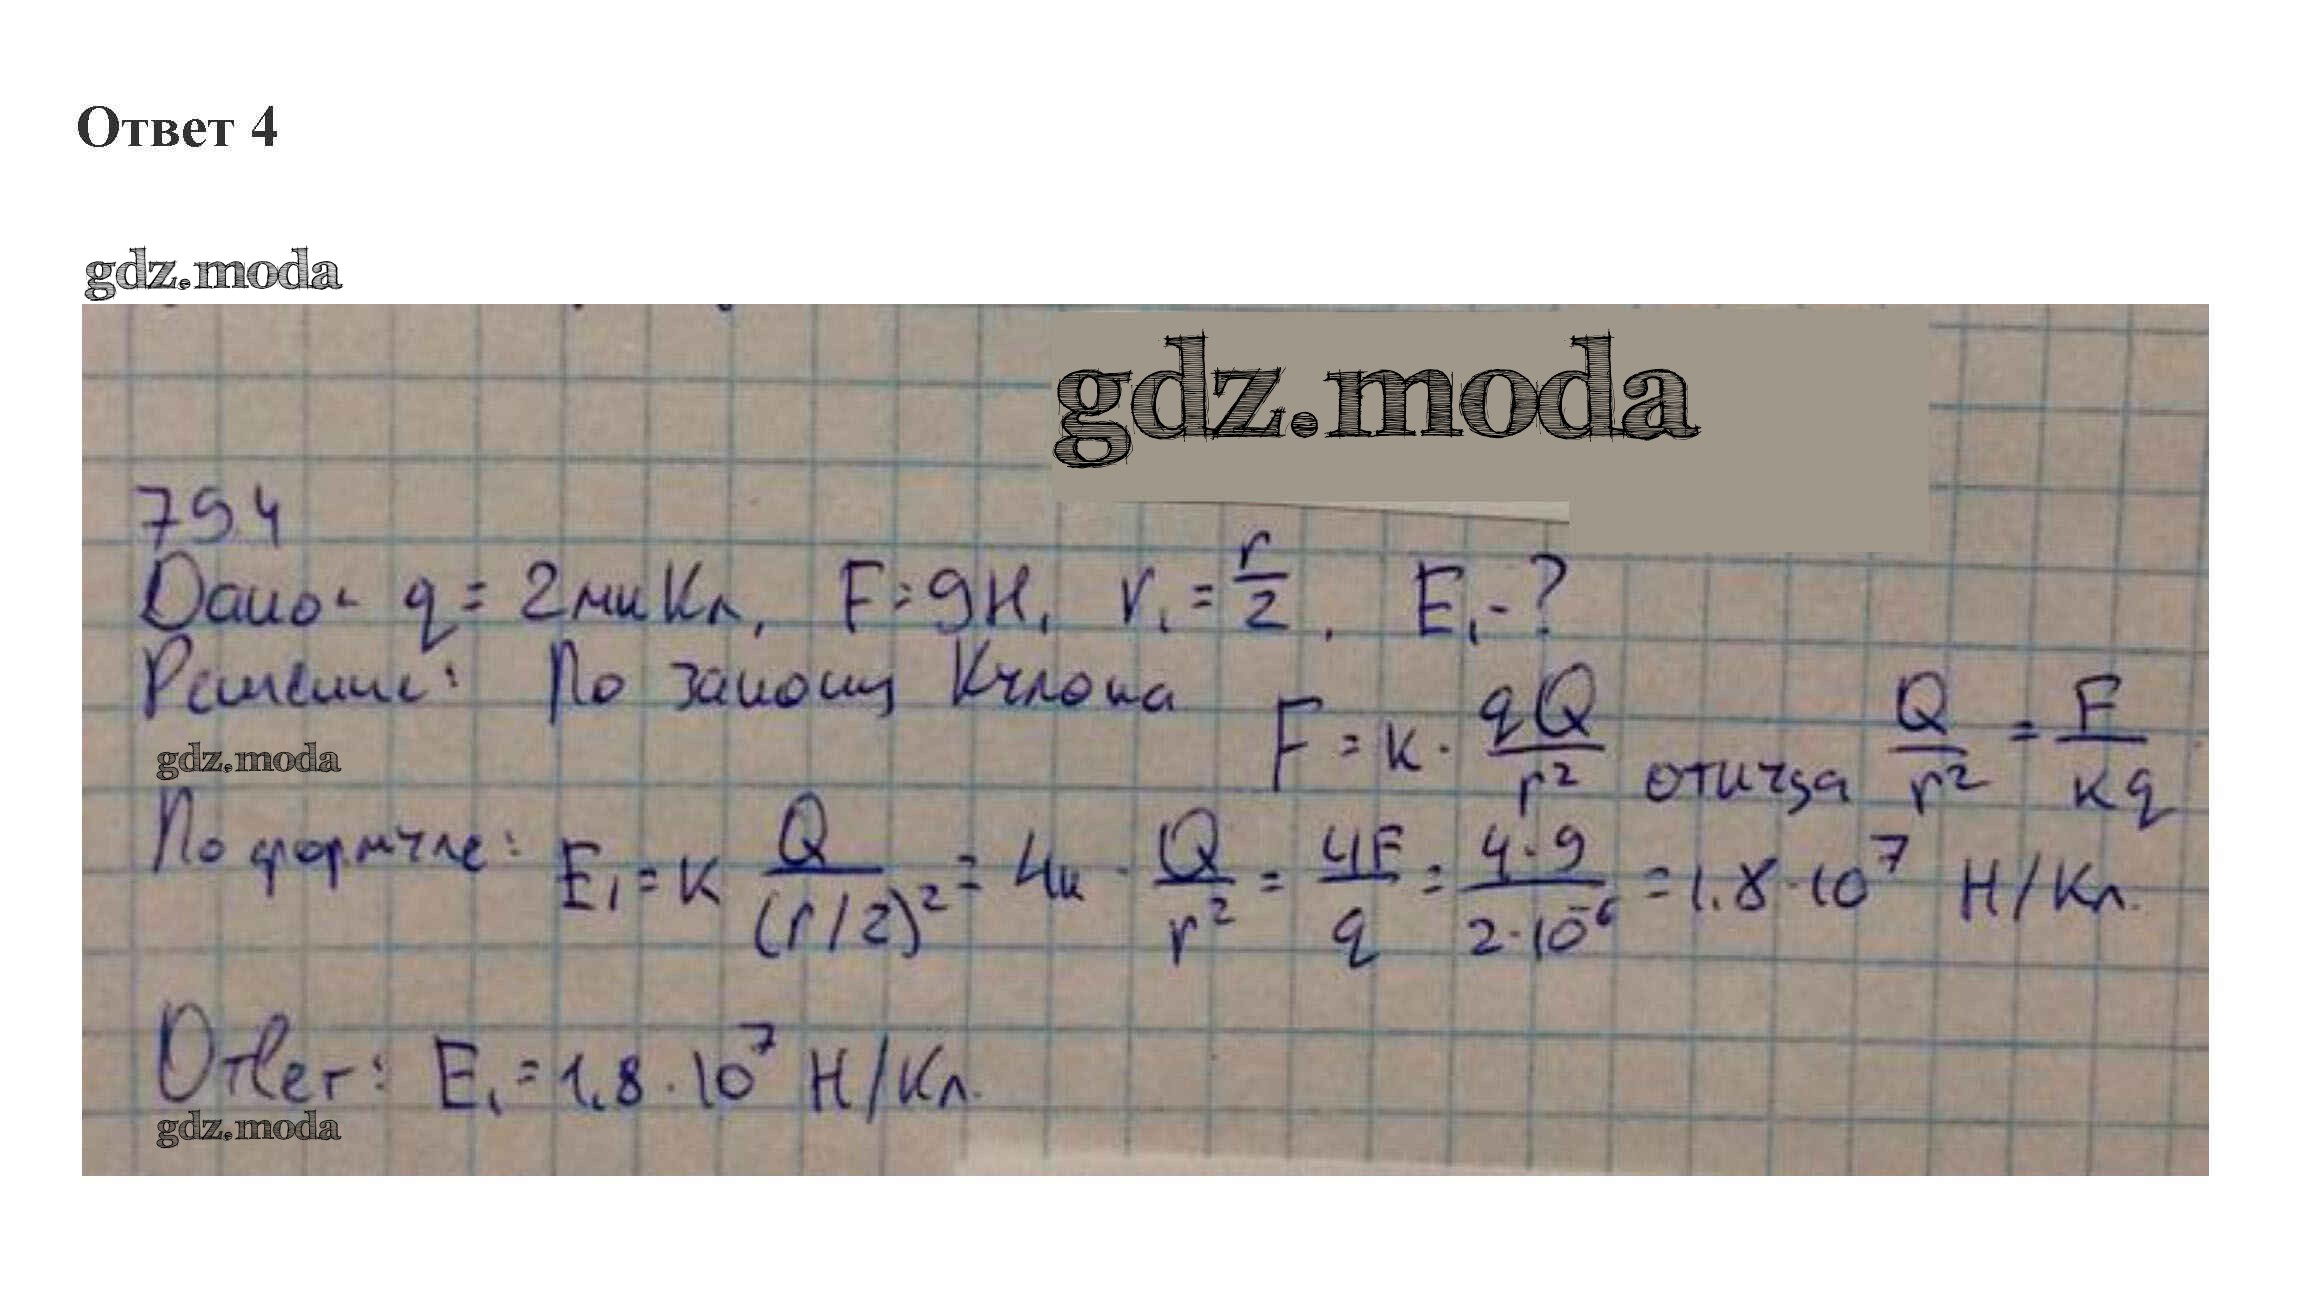 Ответ 4
gdz.moda
gdz.moda
79.4
Дано: q = 2 мкКл, F = 9Н, r₁ = r/2, E₁ - ?
Решение: По закону Кулона F = k · qQ/r² откуда Q/r² = F/kq
gdz.moda
По формуле: E₁ = k Q/(r/2)² = 4k · Q/r² = 4F/q = 4·9/2·10⁻⁶ = 1.8·10⁷ Н/Кл.
Ответ: E₁ = 1.8·10⁷ Н/Кл.
gdz.moda